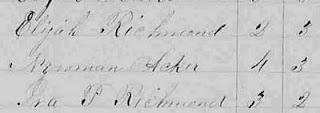 Elijah Richmond 2 3
Newman Acker 4 3
Ira P Richmond 3 2